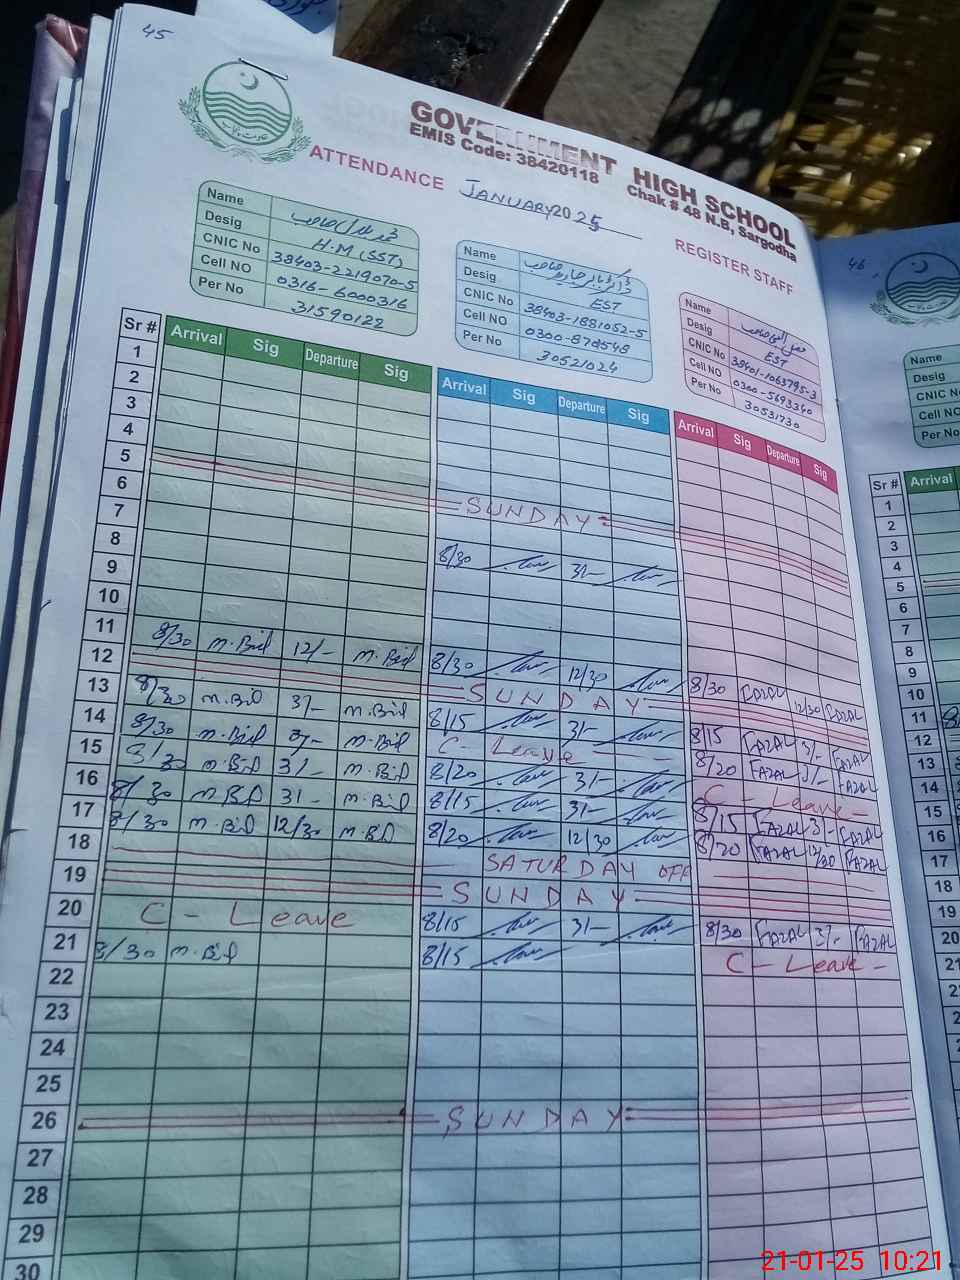 45
GOVERNMENT HIGH SCHOOL
EMIS Code: 38420118 Chak # 48 N.B, Sargodha
ATTENDANCE JANUARY 2025 REGISTER STAFF
Name
Desig H.M (SST)
CNIC No 38403-2219070-5
Cell NO 0316-6000316
Per No 31590122
Name
Desig EST
CNIC No 38403-1881052-5
Cell NO
Per No 30521024
Name
Desig EST
CNIC No 38401-1063795-3
Cell NO 0300-5693340
Per No 30531730
Sr # Arrival Sig Departure Sig Arrival Sig Departure Sig Arrival Sig Departure Sig
1
2
3
4
5 SUNDAY
6
7
8 8/30 3/-
9
10
11 8/30 M.Bil 12/- M.Bil 8/30 12/30 8/30 FAZAL 12/30 FAZAL
12 SUNDAY
13 8/30 M.Bil 3/- M.Bil 8/15 3/- 8/15 FAZAL 3/- FAZAL
14 8/30 M.Bil 3/- M.Bil C - Leave 8/20 FAZAL 3/- FAZAL
15 8/30 M.Bil 3/- M.Bil 8/20 3/- C - Leave -
16 8/30 M.Bil 3/- M.Bil 8/15 3/- 8/15 FAZAL 3/- FAZAL
17 8/30 M.Bil 12/30 M.Bil 8/20 12/30 8/20 FAZAL 12/30 FAZAL
18 SATURDAY OFF
19 SUNDAY
20 C - Leave 8/15 3/- 8/30 FAZAL 3/- FAZAL
21 8/30 M.Bil 8/15 C - Leave -
22
23
24
25
26 SUNDAY
27
28
29
30
46
Name
Desig
CNIC No
Cell NO
Per No
Sr # Arrival
1
2
3
4
5
6
7
8
9
10
11
12
13
14
15
16
17
18
19
20
21
21-01-25 10:21